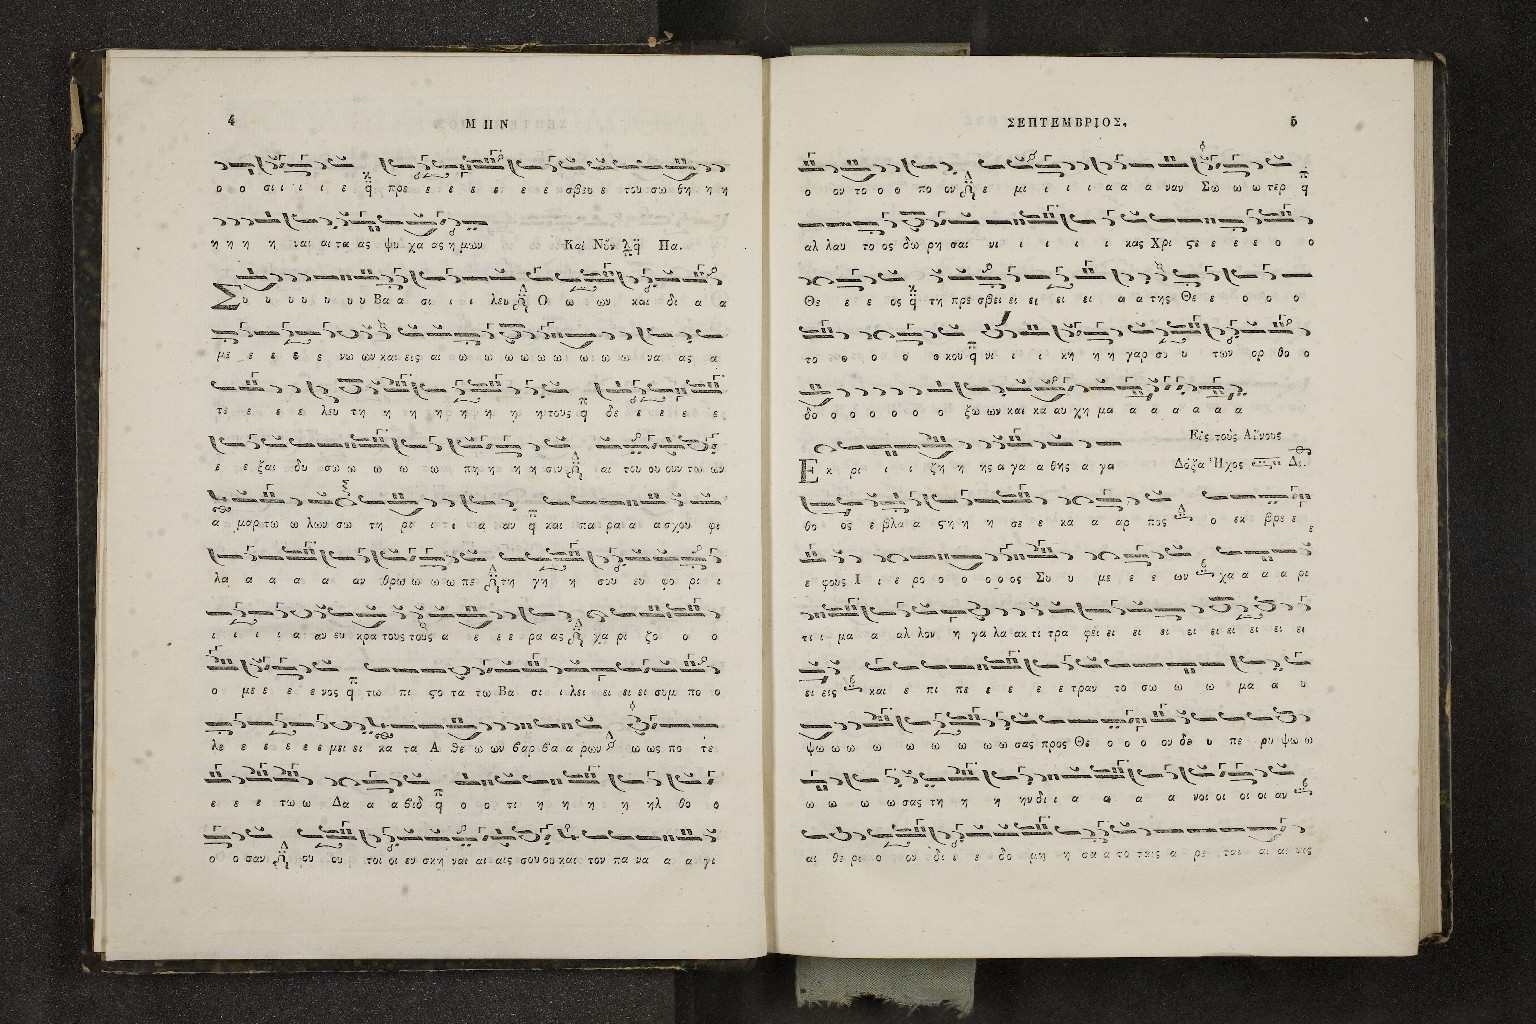 4
ΜΗΝ
ο ο σι ι ι ι ε πρε ε ε ε ε ε ε σβευ ε του σω θη η η
η η η η ναι αι τα ας ψυ χα ας η μων Καὶ Νῦν Πα.
Συ υ υ υ υ υ υ Βα α σι ι ι λευ Ο ω ων και δι α α
με ε ε ε ε νω ων και εις αι ω ω ω ω ω ω ω ω ω να ας α
τε ε ε ε λευ τη η η η η η η η η τους δε ε ε ε ε
ε ε ξαι δυ σω ω ω ω ω πη η η η σιν αι του ου ουν τω ων
α μαρ τω ω λων σω τη ρι ι ι ι α αν και πα ρα α α σχου φι
λα α α α α αν θρω ω ω ω πε τη γη η σου ευ φο ρι ι
ι ι ι ι α αν ευ κρα τους τους α ε ε ε ρα ας χα ρι ζο ο ο
ο με ε ε ε νος τω πι ςο τα τω Βα σι ι λει ει ει ει συμ πο ο
λε ε ε ε ε ε μει ει κα τα Α θε ω ων βαρ βα α ρων ω ως πο τε
ε ε ε τω ω Δα α α βιδ ο ο τι η η η η ηλ θο ο
ο ο σαν ου ου τοι οι εν σκη ναι αι αις σου ου και τον πα να α α γι
ΣΕΠΤΕΜΒΡΙΟΣ.
5
ο ον το ο ο πο ον ε μι ι ι ι α α α ναν Σω ω ω τερ
αλ λαυ το ος δω ρη σαι νι ι ι ι ι κας Χρι ςε ε ε ε ο ο
Θε ε ε ος τη πρε σβει ει ει ει ει α α της Θε ε ο ο ο
το ο ο ο ο κου νι ι ι κη η η γαρ συ υ των ορ θο ο
δο ο ο ο ο ο ο ξω ων και κα αυ χη μα α α α α α α
Εἰς τοὺς Αἴνους
Εκ ρι ι ι ζη η ης α γα α θης α γα Δόξα Ἦχος Δι.
θο ος ε βλα α ςη η η σε ε κα α αρ πος ο εκ βρε ε ε
ε φους Ι ι ε ρο ο ο ο ο ος Συ υ με ε ε ων χα α α α ρι
τι ι μα α αλ λον η γα λα ακ τι τρα φει ει ει ει ει ει ει ει ει ει
ει εις και ε πι πε ε ε ε ε τραν το σω ω ω μα α υ
ψω ω ω ω ω ω ω ω ω σας προς Θε ο ο ο ον δε υ πε ρυ ψω ω
ω ω ω ω σας τη η η ην δι ι α α α α νοι οι οι οι αν
αι θε ρι ο ον δι ι ε δο μη η σα α το ταις α ρε ται αι αι αις